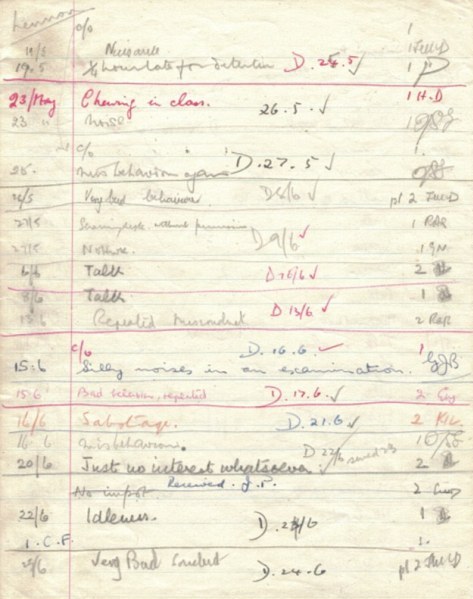 Lennon
c/o 1
19/5 Nuisance
19.5 ½ hour late for detention D.25.5 ✓ 1
23/May Chewing in class. 26.5. ✓ 1 H.D
23 " noise 1
c/o
25. misbehaviour again D.27.5 ✓
26/5 Very bad behaviour D 8/6 ✓ 2
27/5 without permission 1 RAR
27/5 No D 9/6 ✓ 1
6/6 Talk D 10/6 ✓ 2
8/6 Talk 1
13.6 Repeated misconduct D 13/6 ✓ 2 RAR
c/o D.16.6. ✓ 1
15.6 Silly noises in an examination. GJB
15.6 Bad behaviour, repeated D.17.6 ✓ 2
16/6 Sabotage. D.21.6 ✓ 2
16 6 misbehaviour. 1
20/6 Just no interest whatsoever D 22/6 ✓ 2
No impot Received. J.P. 2
22/6 Idleness. D.23/6 1
1. C.F. 1.
23/6 Very Bad Conduct D.24.6 2